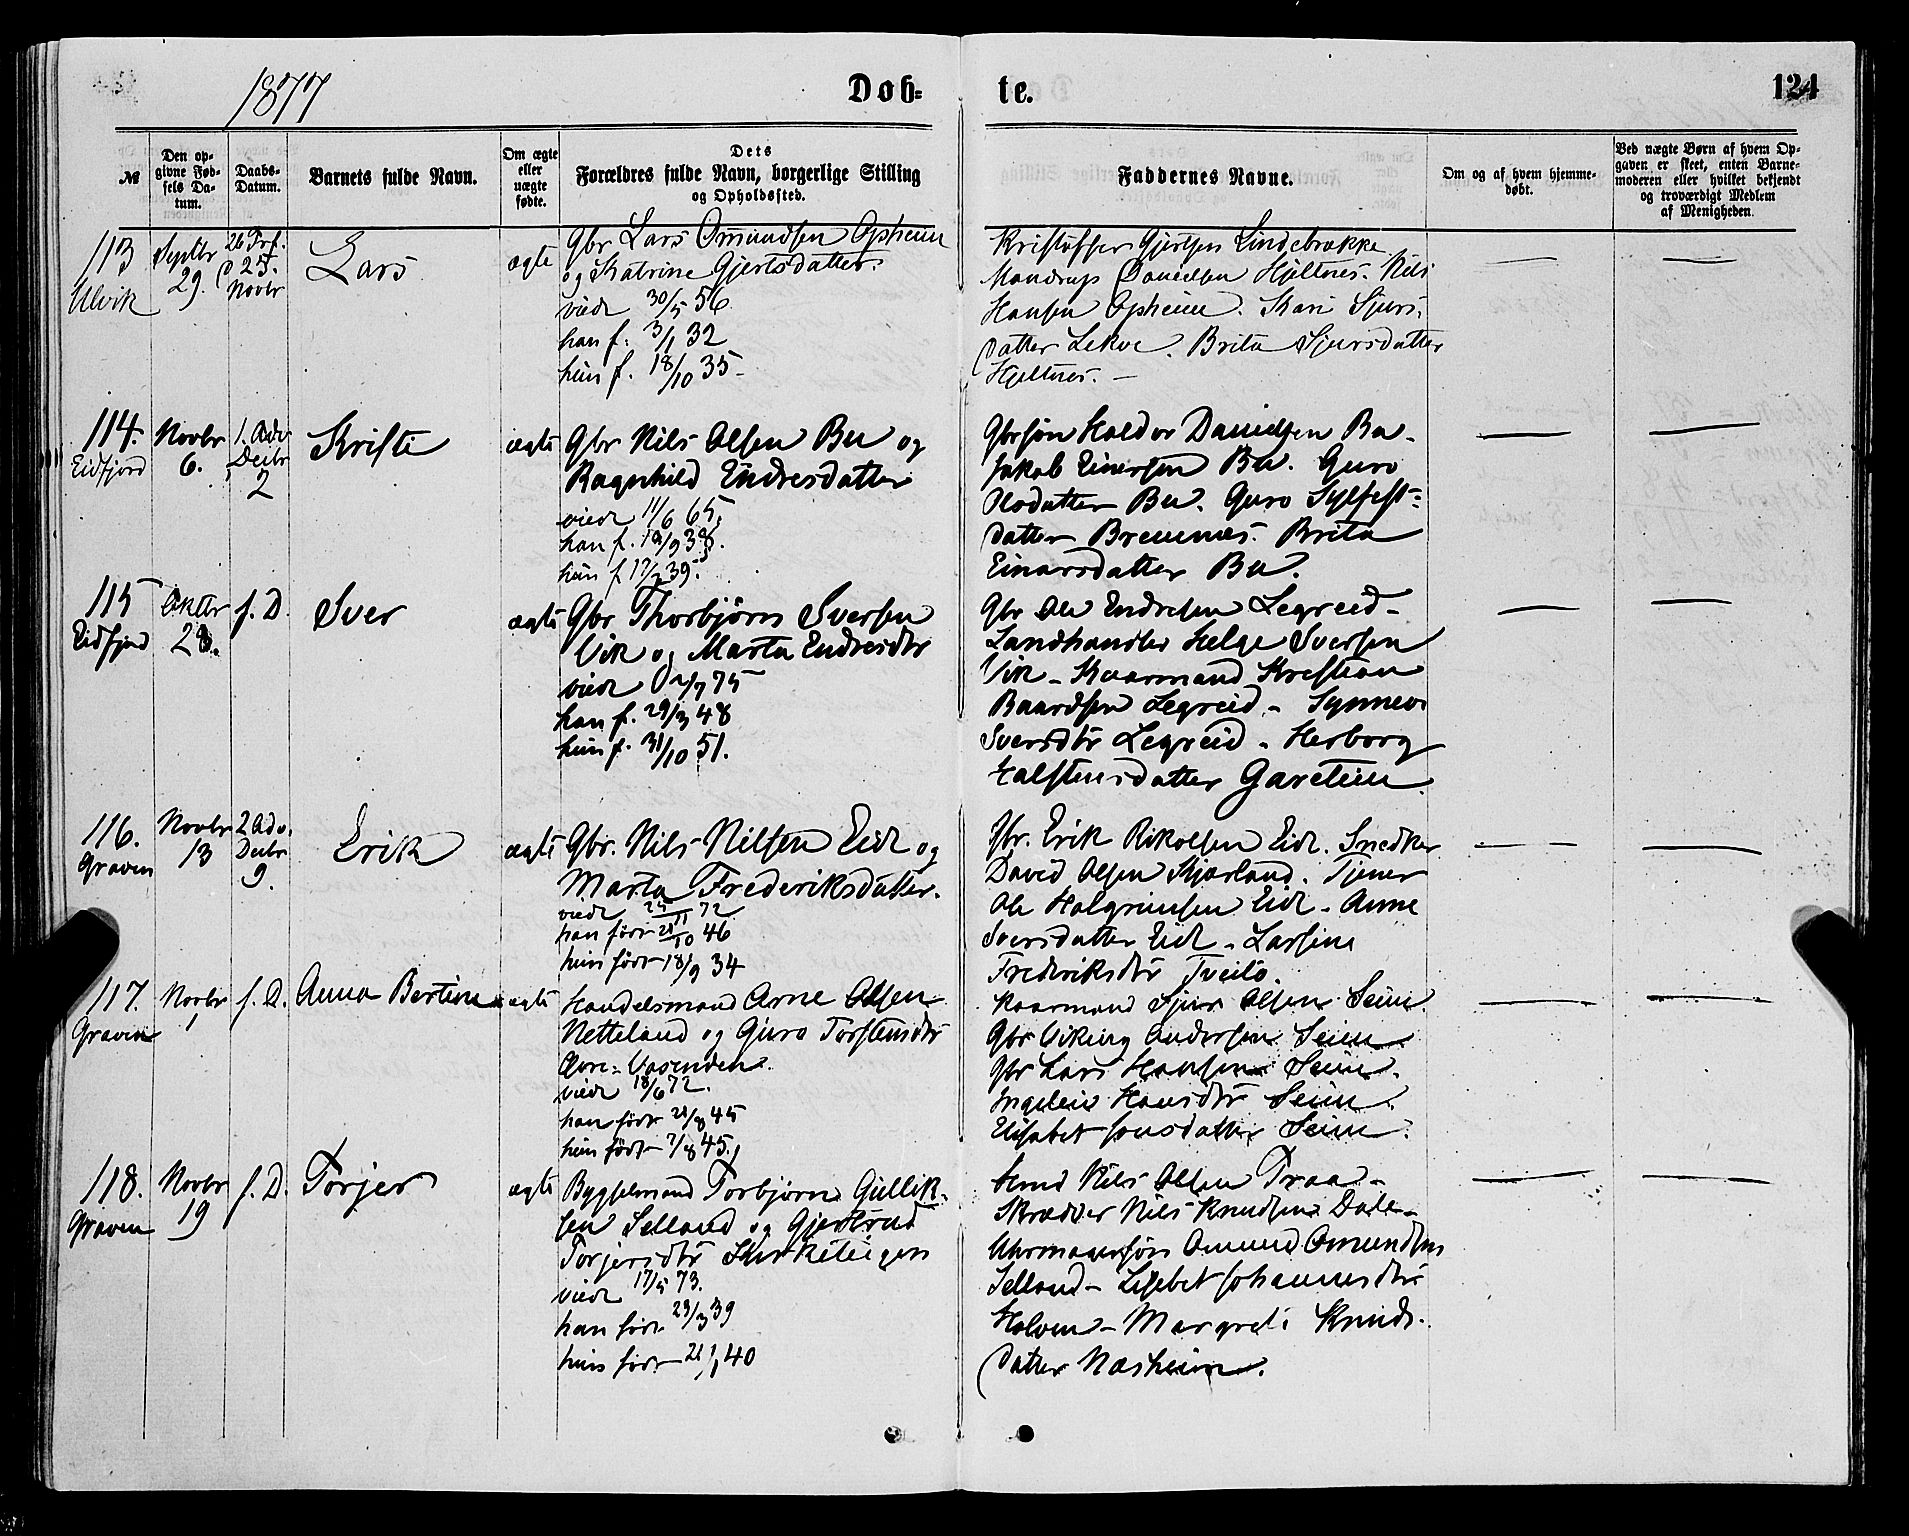 1877
Døb-
te.
124
№
Den op-
givne Fød-
sels Da-
tum.
Daabs-
Datum.
Barnets fulde Navn.
Om ægte
eller
uægte
fødte.
Dets
Forældres fulde Navn, borgerlige Stilling
og Opholdssted.
Faddernes Navne.
Om og af hvem hjemme-
døbt.
Ved uægte Børn af hvem Op-
gaven er skeet, enten Barne-
moderen eller hvilket bekjendt
og troværdigt Medlem
af Menigheden.
113
Ulvik
Septbr
29.
26 Trf.
25.
Novbr
Lars
ægte
Gbr Lars Omundsen Opheim
og Katrine Gjertsdatter.
viede 30/5 56
han f. 3/1 32
hun f. 18/10 35
Kristoffer Gjertsen Lindebrække
Mandrup Danielsen Hjeltnes. Nils
Hansen Opheim. Kari Sjurs-
datter Lekve. Brita Sjursdatter
Hjeltnes. —
114.
Eidfjord
Novbr
6.
1. Adv
Decbr
2
Kristi
ægte
Gbr Nils Olsen Bu og
Ragnhild Endresdatter
viede 11/6 65.
han f. 19/9 38.
hun f 17/2 39.
Gbrsøn Haldor Danielsen Bu -
Jakob Einersen Bu. Guro
Olsdatter Bu. Guro Sylfest-
datter Bremnes. Brita
Einarsdatter Bu.
115
Eidfjord
Oktbr
28.
f. D.
Sver
ægte
Gbr Thorbjørn Sversen
Vik og Marta Endresdtr
viede 2/7 75
han f. 29/3 48
hun f. 31/10 51.
Gbr Ole Endresen Legreid -
Landhandler Helge Sversen
Vik - Kaarmand Kristian
Baardsen Legreid - Synneve
Sversdtr Legreid - Herborg
Halstensdatter Garetun
116.
Graven
Novbr
13
2 Adv.
Decbr
9.
Erik
ægte
Gbr. Nils Nilsen Eide og
Marta Frederiksdatter.
viede 25/11 72
han født 28/10 46
hun født 18/9 34
Gbr. Erik Rikolsen Eide. Snedker
David Olsen Kjærland. Tjener
Ole Halgrimsen Eide - Anne
Sversdatter Eide - Larsine
Frederiksdtr Tveito.
117.
Graven
Novbr
1
f. D.
Anna Bertine
ægte
Handelsmand Arne Olsen
Netteland og Guro Torstensdtr
Øvre-Vasenden.
viede 18/6 72.
han født 21/8 45
hun født 7/8 45.
Kaarmand Sjur Olsen Seim.
Gbr Viking Andersen Seim.
Gbr Lars Hansen Seim.
Ingeleiv Hansdtr Seim.
Elisabet Jonsdatter Seim.
118.
Graven
Novbr
19
f. D.
Torjer
ægte
Bygselmand Torbjørn Gullik-
sen Selland og Gjertrud
Torjersdtr Kirketeigen
viede 17/5 73.
han født 23/3 39
hun født 21/1 40
Nils Olsen Traa -
Skrædder Nils Knudsen Dale -
Uhrmagersøn Omund Omundsen
Selland - Lisbet Johannesdtr
Holven - Margreti Knuds-
datter Næsheim.